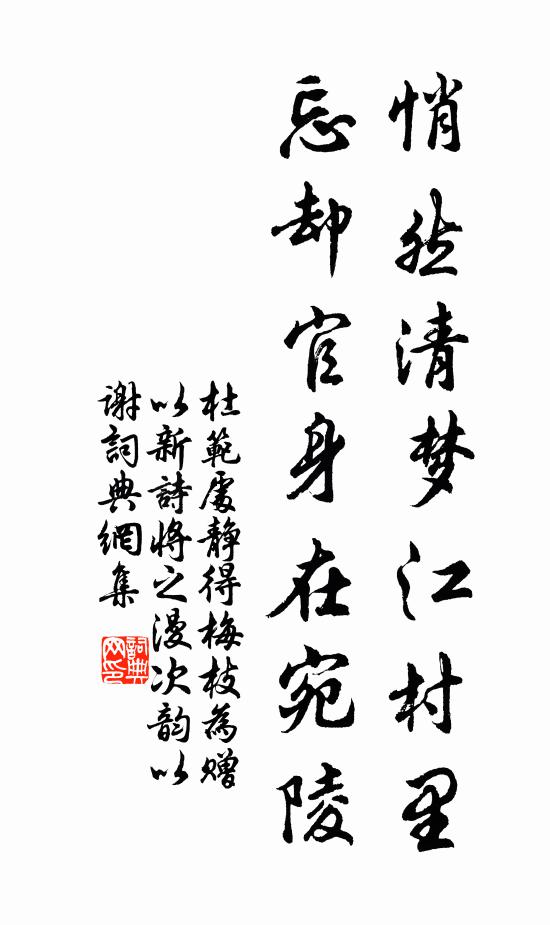 悄然清梦江村里
忘却官身在宛陵
杜範處静得梅枝為贈
以新詩將之漫次韵以
謝詞典網集
詞典网印